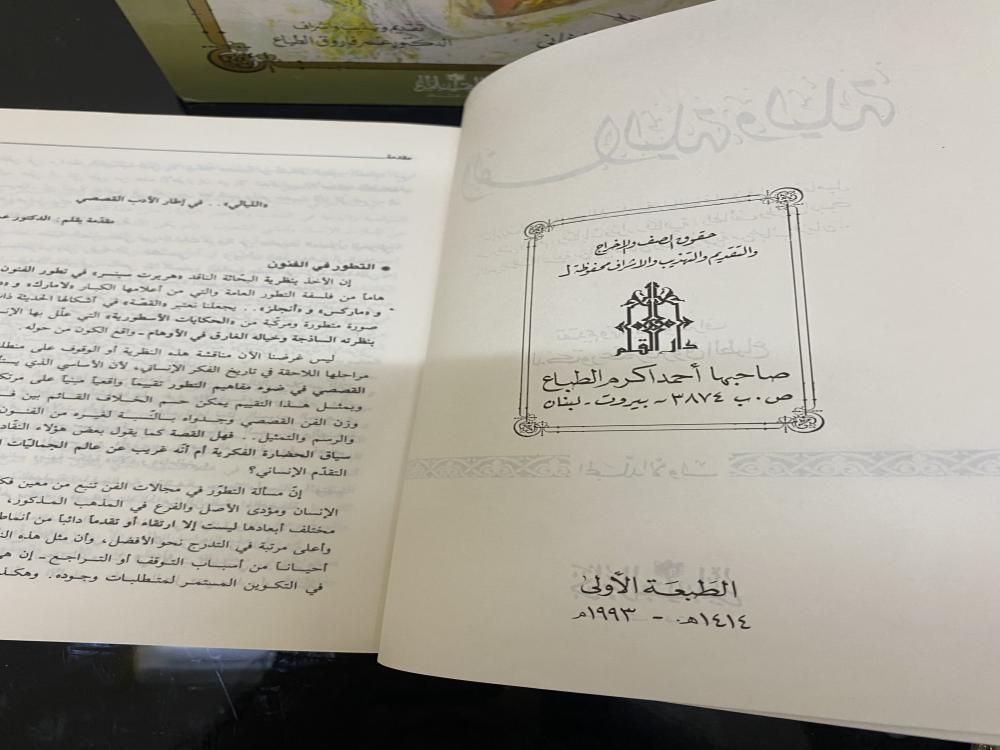 تقديم
الدكتور عمر فاروق الطباع
حقوق الصف والإخراج
والتقديم والتهذيب والإشراف محفوظة لـ
دار القلم
صاحبها أحمد أكرم الطباع
ص.ب ٣٨٧٤ - بيروت - لبنان
الطبعة الأولى
١٤١٤هـ - ١٩٩٣م
مقدمة
«الليالي».. في إطار الأدب القصصي
مقدمة بقلم: الدكتور
• التطور في الفنون
إن الأخذ بنظرية البحّاثة الناقد «هربرت سبنسر» في تطور الفنون
هاماً من فلسفة التطور العامة والتي من أعلامها الكبار «لامارك» و
و«ماركس» و«أنجلز».. يجعلنا نعتبر «القصّة» في أشكالها الحديثة
صورة متطورة ومركّبة من «الحكايات الأسطورية» التي علّل بها
بنظرته الساذجة وخياله الغارق في الأوهام - واقع الكون من حوله.
ليس غرضنا الآن مناقشة هذه النظرية أو الوقوف على
مراحلها اللاحقة في تاريخ الفكر الإنساني، لأن الأساسي الذي
القصصي في ضوء مفاهيم التطور تقييماً واقعياً مبنياً على
وبمثل هذا التقييم يمكن حسم الخلاف القائم بين
وزن الفن القصصي وجدواه بالنّسبة لغيره من الفنون
والرسم والتمثيل.. فهل القصة كما يقول بعض هؤلاء النقّاد
سياق الحضارة الفكرية أم أنّه غريب عن عالم الجماليّات
التقدّم الإنساني؟
إنّ مسألة التطوّر في مجالات الفن تنبع من معين
الإنسان ومؤدى الأصل والفرع في المذهب المذكور،
مختلف أبعادها ليست إلا ارتقاء أو تقدماً دائباً من
وأعلى مرتبة في التدرج نحو الأفضل، وأن مثل هذه
أحياناً من أسباب التوقف أو التراجع - إن
في التكوين المستمر لمتطلبات وجوده. وهكذا